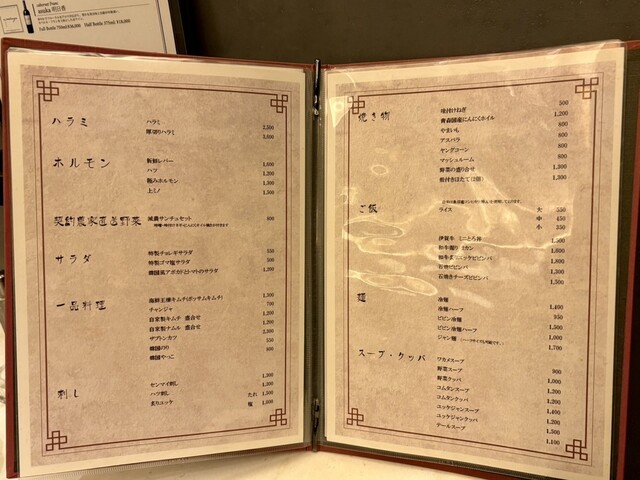 asuka 明日香
Full Bottle 750ml ¥36,000 Half Bottle 375ml ¥18,000
ハラミ
ハラミ 2,500
厚切りハラミ 3,000
ホルモン
新鮮レバー 1,600
ハツ 1,200
極みホルモン 1,500
上ミノ 1,500
契約農家直送野菜
減農サンチュセット 800
サラダ
特製チョレギサラダ 550
特製ゴマ塩サラダ 500
韓国風アボカドとトマトのサラダ 1,200
一品料理
海鮮主棟キムチ(ポッサムキムチ) 1,300
チャンジャ 700
自家製キムチ 盛合せ 1,300
自家製ナムル 盛合せ 1,300
ザブトンカツ 550
韓国のり 800
韓国やっこ 800
刺し
センマイ刺し 1,300
ハツ刺し たれ 1,500
炙りユッケ 塩 1,600
焼き物
味付けねぎ 500
青森国産にんにくホイル 1,200
やまいも 800
アスパラ 800
ヤングコーン 800
マッシュルーム 800
野菜の盛り合せ 1,300
殻付きほたて(2個) 1,300
ご飯
ライス 大 550
中 450
小 350
伊賀牛 ミニとろ丼 1,500
石焼ビビンバ
石焼きチーズビビンバ 1,500
麺
冷麺 1,400
冷麺ハーフ 950
ビビン冷麺 1,500
ビビン冷麺ハーフ 1,000
ジャン麺 1,700
スープ・クッパ
ワカメスープ 900
野菜スープ 1,000
野菜クッパ 1,200
コムタンスープ 1,200
コムタンクッパ 1,400
ユッケジャンスープ 1,200
ユッケジャンクッパ 1,500
テールスープ 1,100